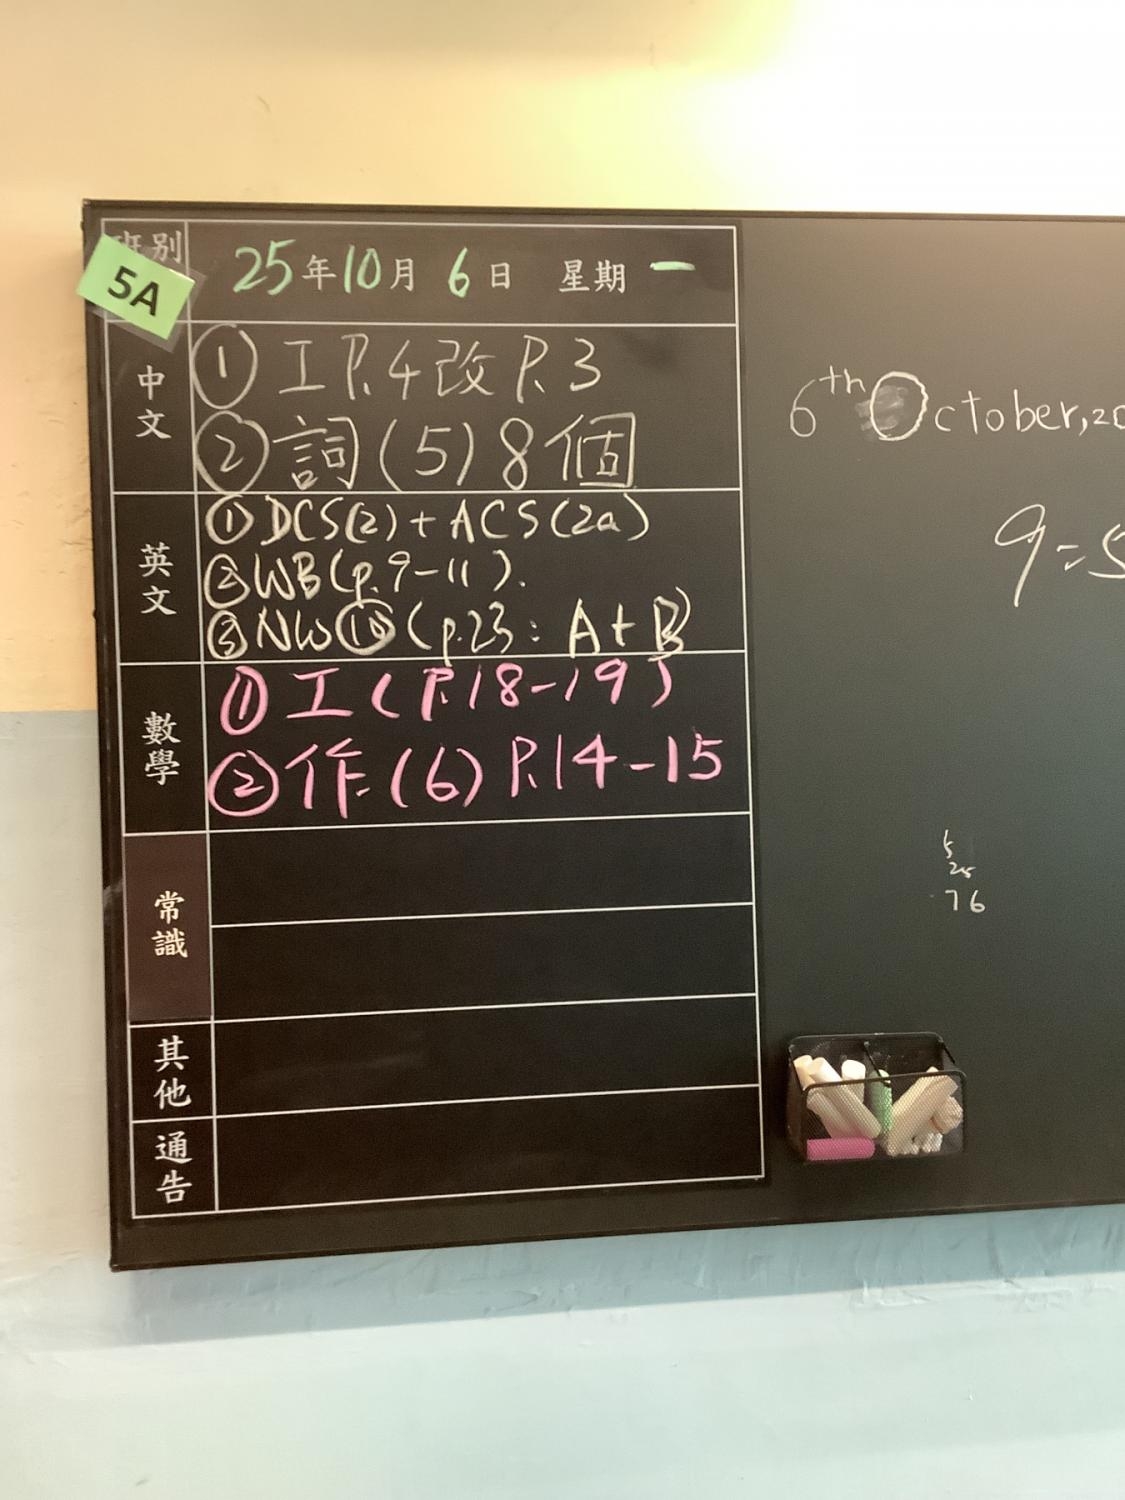 班別
5A
25年10月6日 星期一
中文
① 工 P.4 改 P.3
② 詞(5)8個
英文
① DCS(2)+ACS(2a)
② WB(p.9-11).
③ NW⑩(p.23: A+B)
數學
① 工(P.18-19)
② 作(6)P.14-15
常識
其他
通告
6th October, 20
9=5
5
76